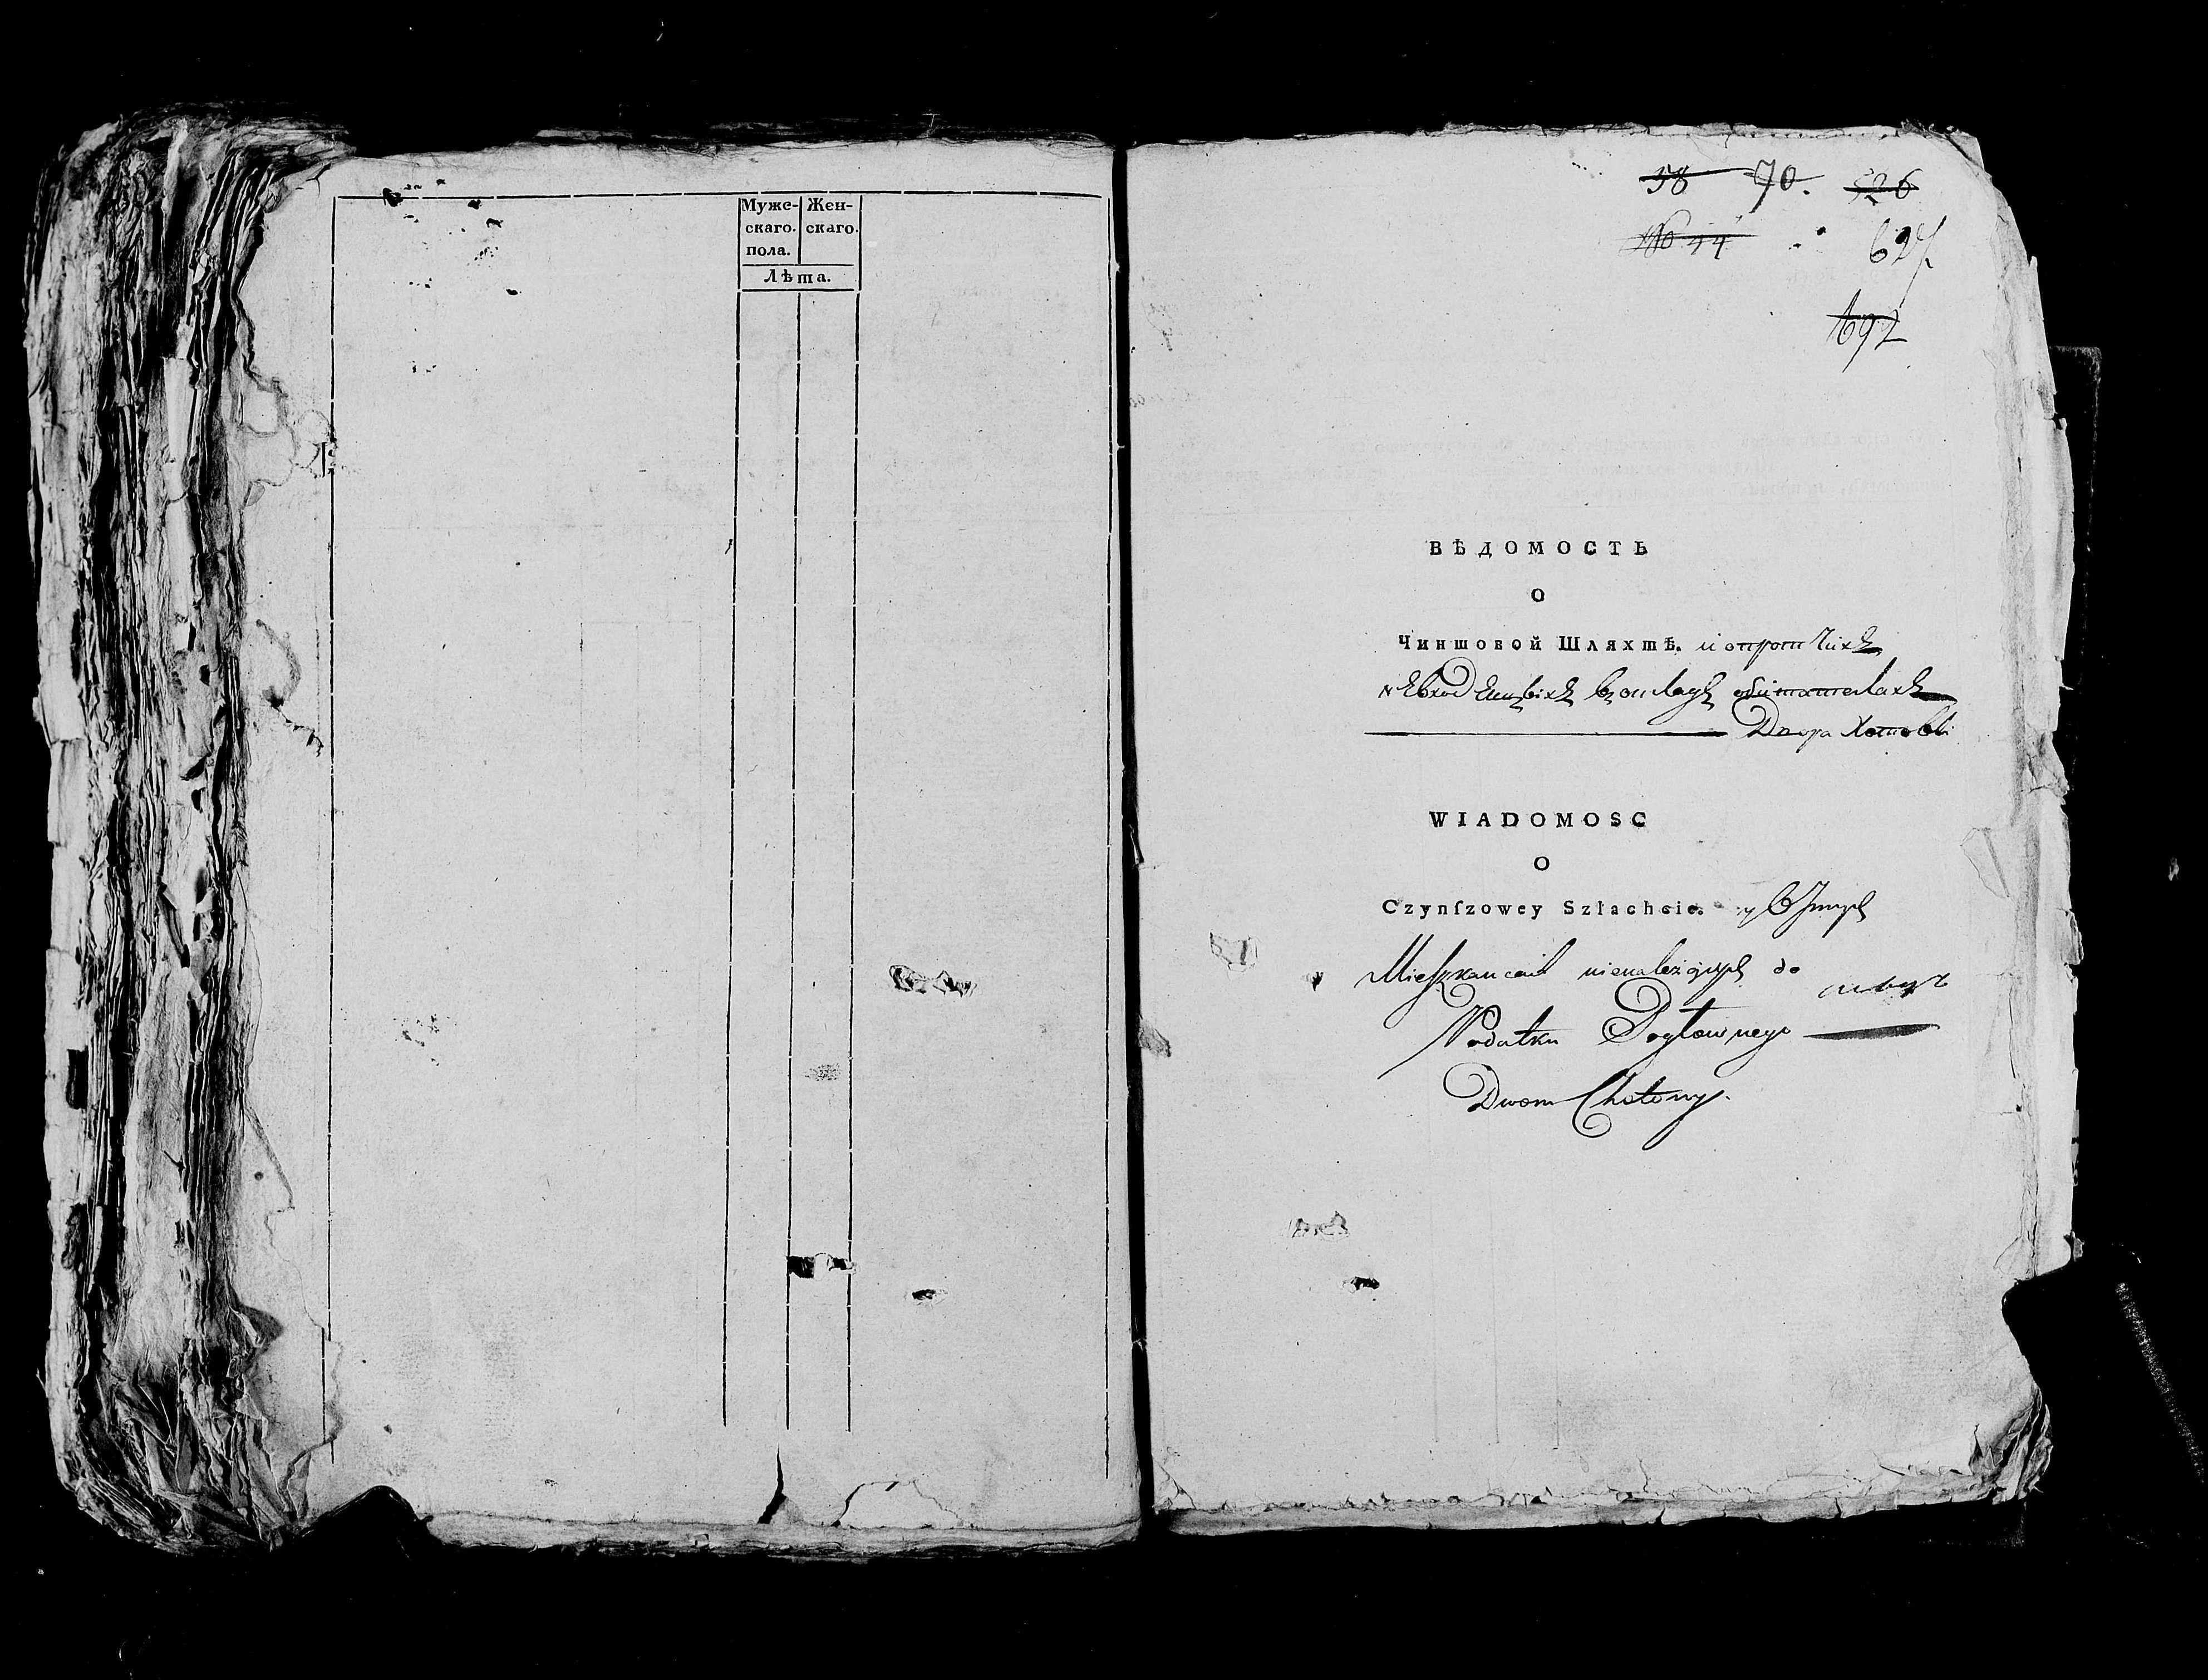 Муже- Жен-
скаго. скаго.
пола.
Лѣта.
58 70. 526
No 44 627
692
ВѢДОМОСТЬ
О
Чиншовой Шляхтѣ. и о протчихъ
невходящихъ обитателахъ
Двора
WIADOMOSC
O
Czynſzowey Szłachcie. y O Innych
Mieszkancach nienależących do
Podatku Pogłownego
Dworu Chotowy.